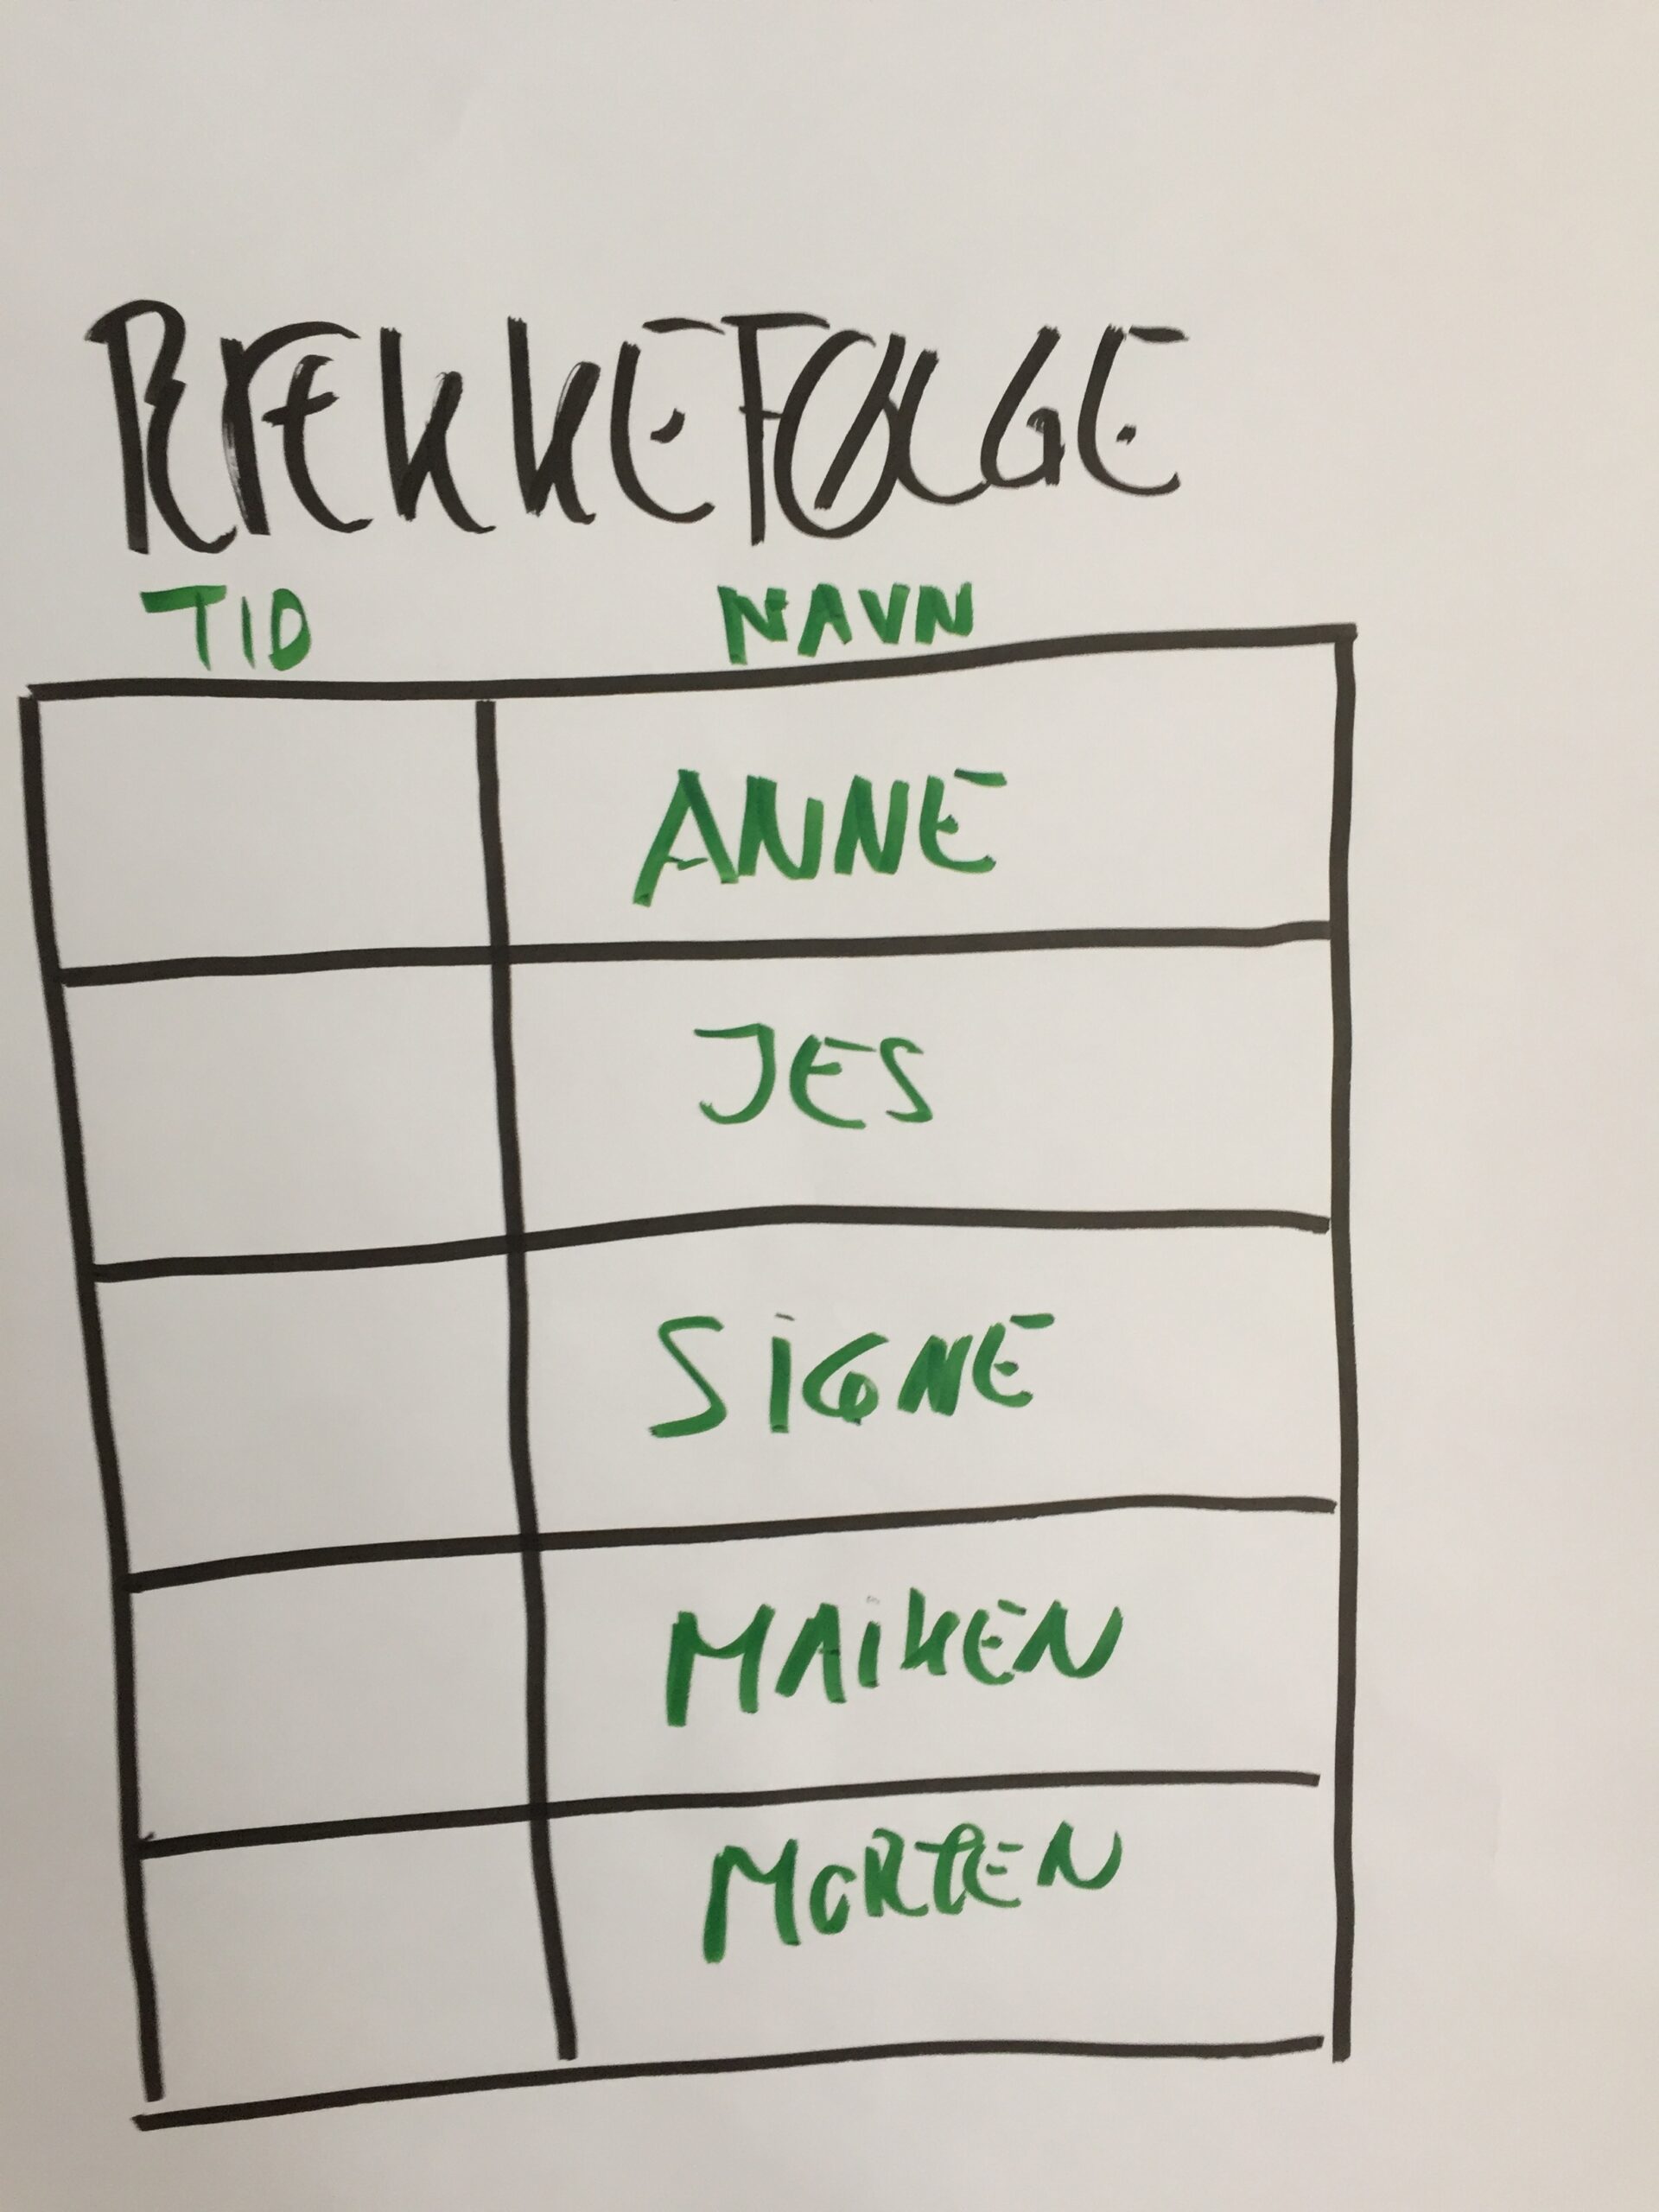 RÆKKEFØLGE
TID NAVN
ANNE
JES
SIGNE
MAIKEN
MORTEN